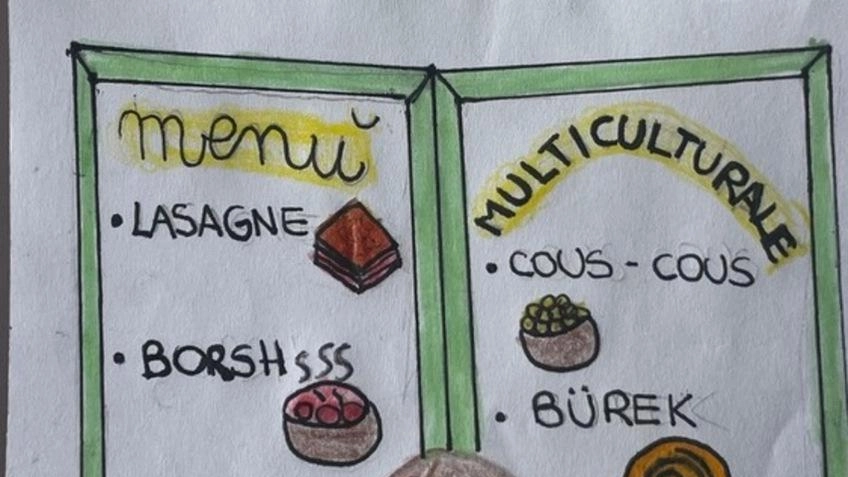 menù
• LASAGNE
• BORSH
MULTICULTURALE
• COUS - COUS
• BÜREK